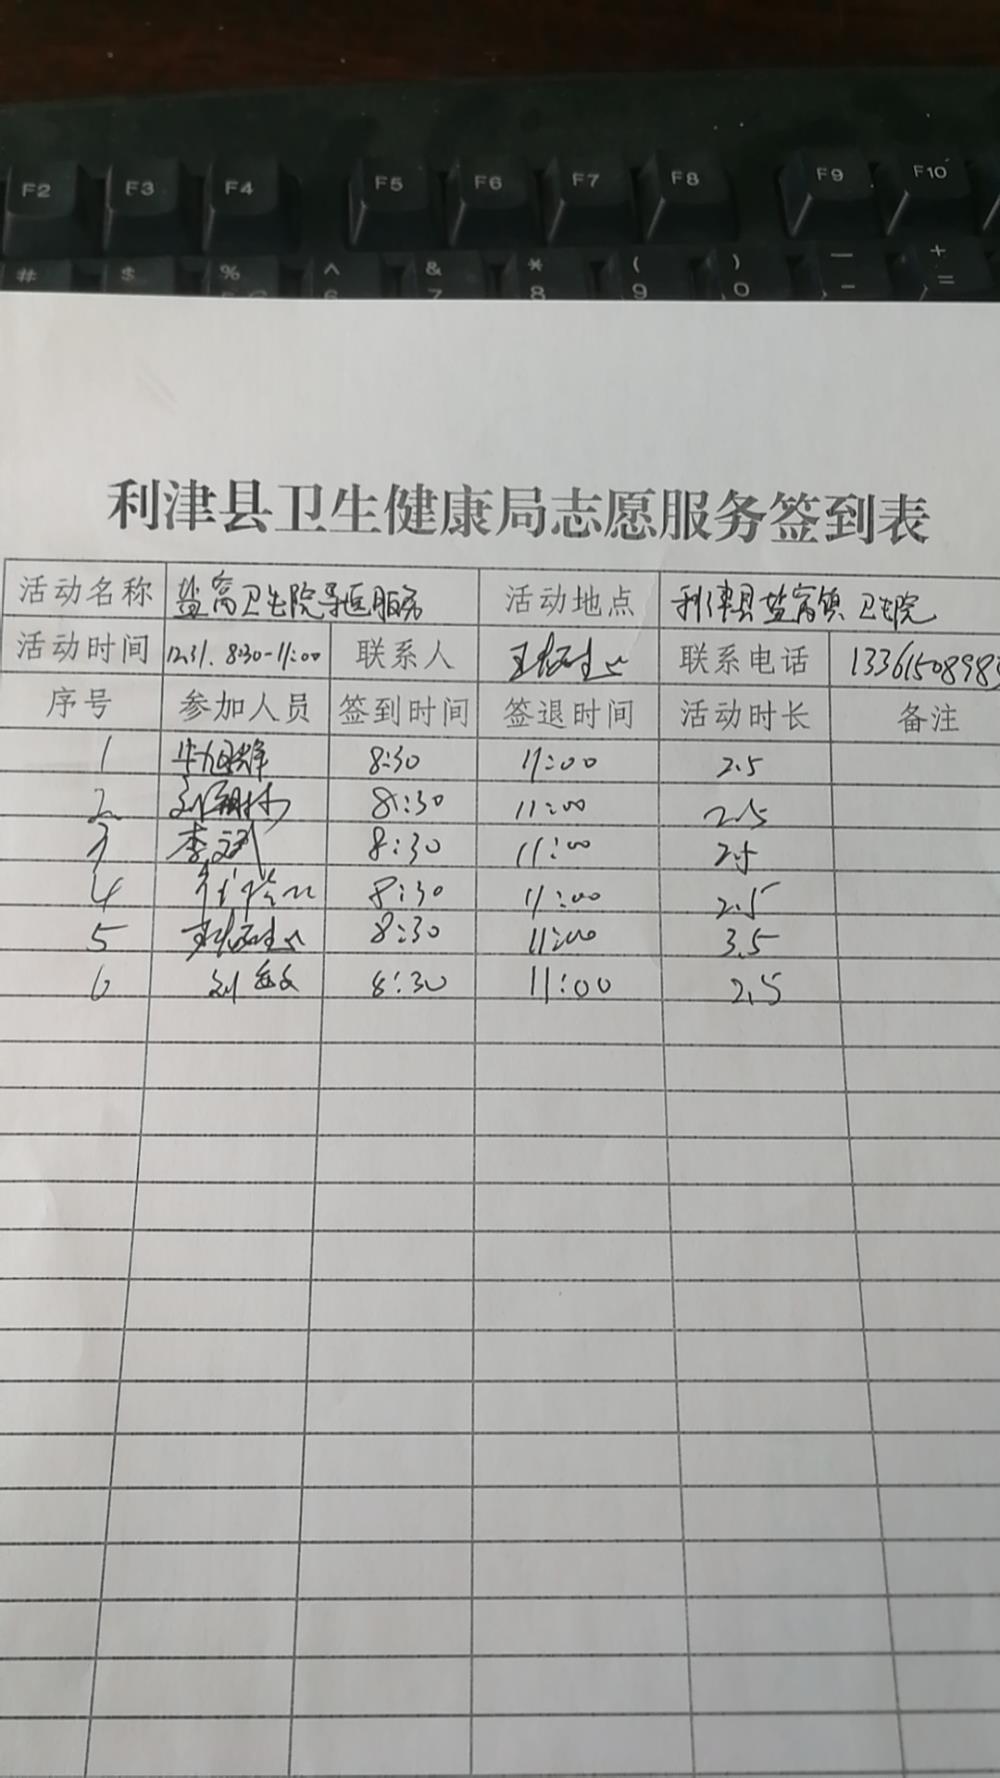 F2 F3 F4 F5 F6 F7 F8 F9 F10
# $ % ^ & * ( ) — +
6 7 8 9 0 - =
利津县卫生健康局志愿服务签到表
活动名称 盐窝卫生院导医服务 活动地点 利津县盐窝镇卫生院
活动时间 12.31. 8:30-11:00 联系人 联系电话 1336150898
序号 参加人员 签到时间 签退时间 活动时长 备注
1 8:30 11:00 2.5
2 8:30 11:00 2.5
3 李文斌 8:30 11:00 2.5
4 8:30 11:00 2.5
5 8:30 11:00 3.5
6 刘敏 8:30 11:00 2.5